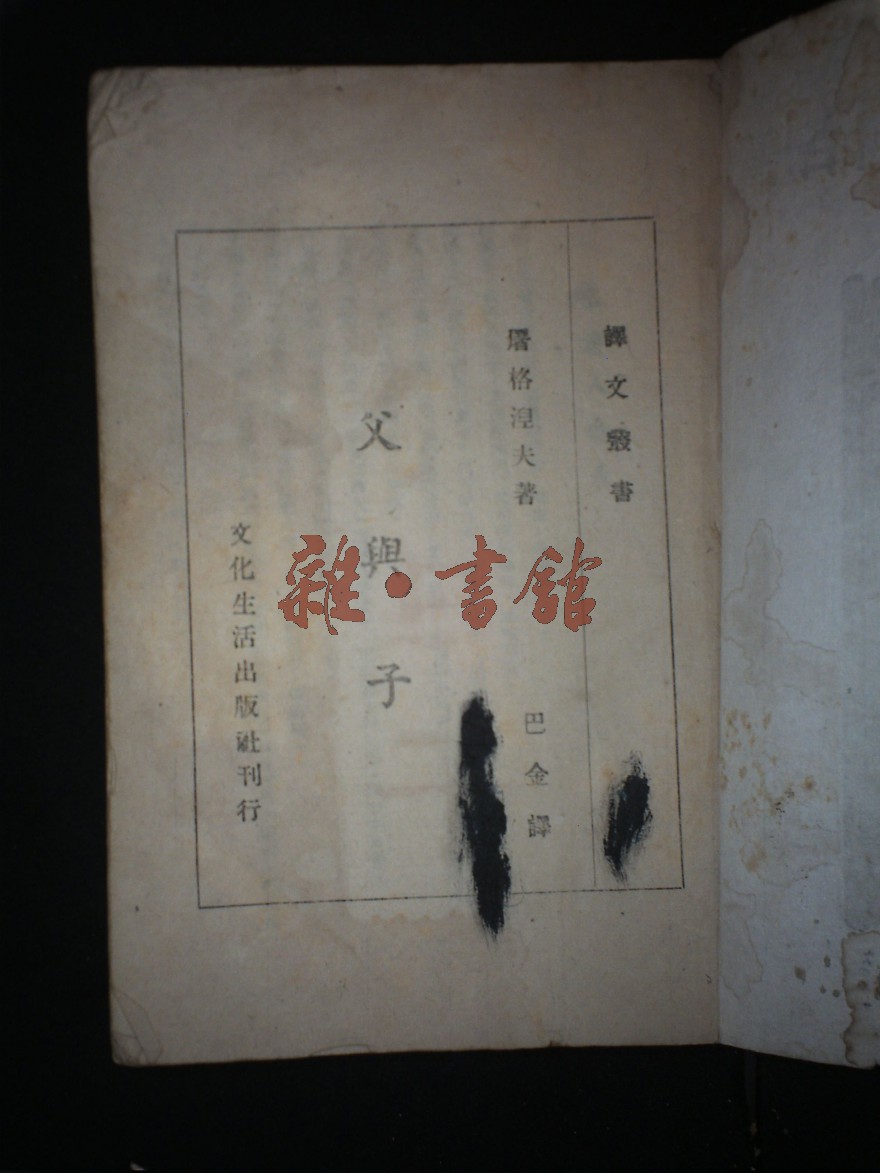 譯文叢書
屠格涅夫著
巴金譯
父與子
文化生活出版社刊行
雜·書館